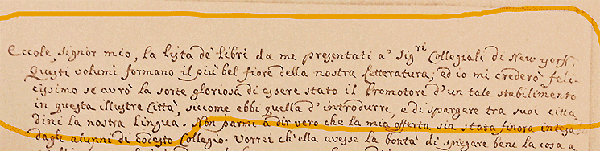 Eccole, Signor mio, la lista de' libri da me presentati a' Sig.ri Collegiali di New York.
Questi volumi formano il più bel fiore della nostra letteratura; ed io mi crederò feli-
cissimo se avrò la sorte gloriosa di essere stato il Promotore d'un tale stabilimento
in questa illustre Città, siccome ebbi quella d'introdurre, e di spargere tra' suoi citta-
dini la nostra Lingua. Non parmi a dir vero che la mia offerta sia stata finora intesa
dagli alunni di codesto Collegio. Vorrei ch'ella avesse la bontà di spiegare bene la cosa a